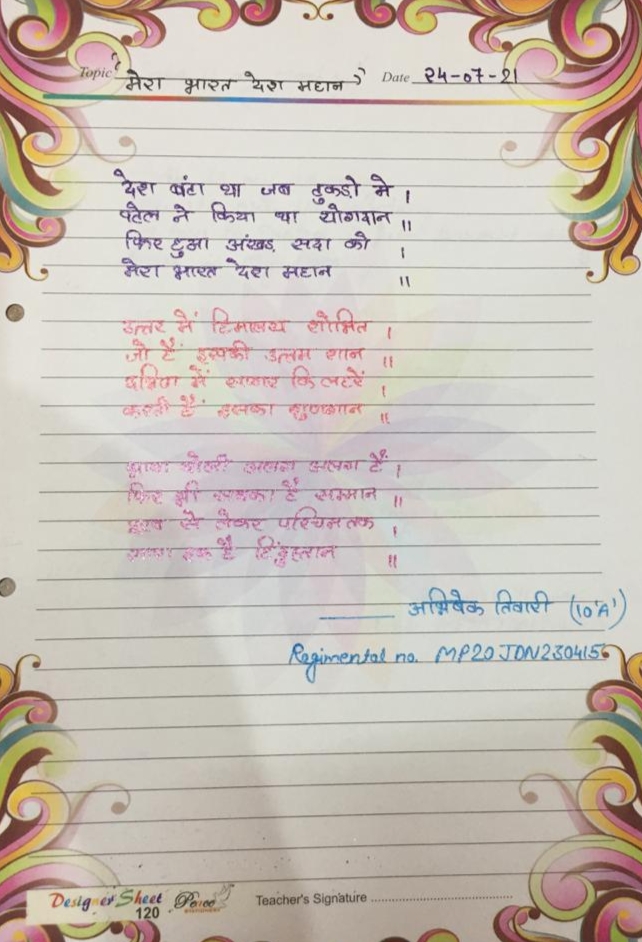 Topic " मेरा भारत देश महान " Date 24-07-21
देश बंटा था जब टुकड़ो मे ।
पटेल ने किया था योगदान ॥
फिर हुआ अंखड़ सदा को ।
मेरा भारत देश महान ॥
उत्तर में हिमालय शोभित ।
जो हैं इसकी उत्तम शान ॥
दक्षिण में सागर कि लहरें ।
करती हैं इसका गुणगान ॥
भाषा बोली अलग अलग हैं ।
फिर भी सबका हैं सम्मान ॥
पूरब से लेकर पश्चिम तक ।
सारा एक है हिंदुस्तान ॥
—— अभिषेक तिवारी (10'A')
Regimental no. MP20JDN230415
Designer Sheet
120
Teacher's Signature